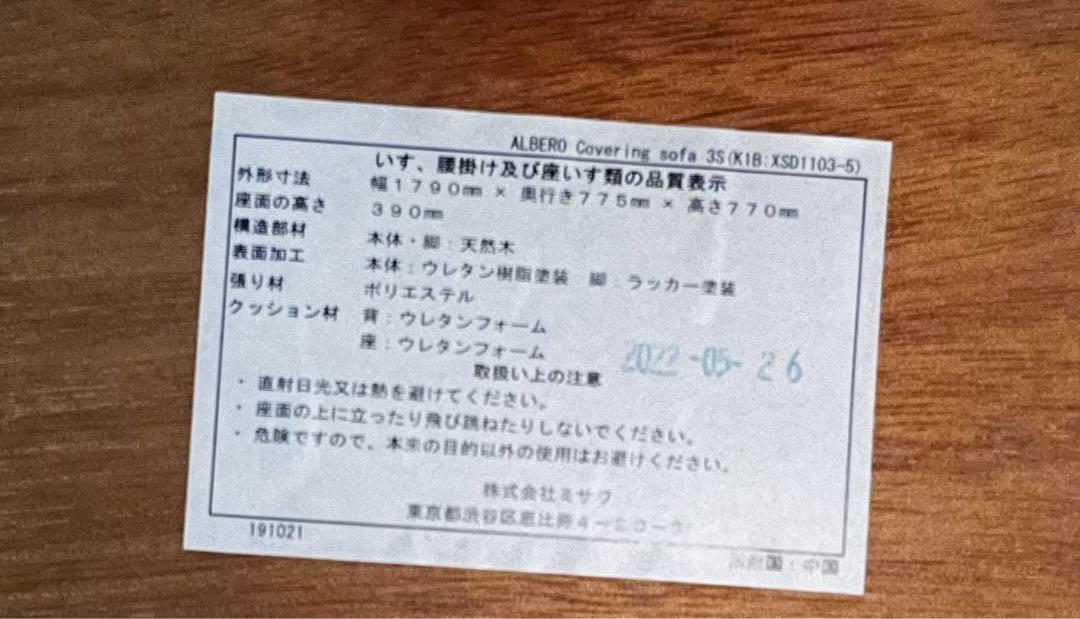 ALBERO Covering sofa 3S(K1B:XSD1103-5)
いす、腰掛け及び座いす類の品質表示
外形寸法 幅1790㎜ × 奥行き775㎜ × 高さ770㎜
座面の高さ 390㎜
構造部材 本体・脚:天然木
表面加工 本体:ウレタン樹脂塗装 脚:ラッカー塗装
張り材 ポリエステル
クッション材 背:ウレタンフォーム
座:ウレタンフォーム
2022-05-26
取扱い上の注意
・直射日光又は熱を避けてください。
・座面の上に立ったり飛び跳ねたりしないでください。
・危険ですので、本来の目的以外の使用はお避けください。
株式会社ミサワ
東京都渋谷区恵比寿4-
191021
国:中国